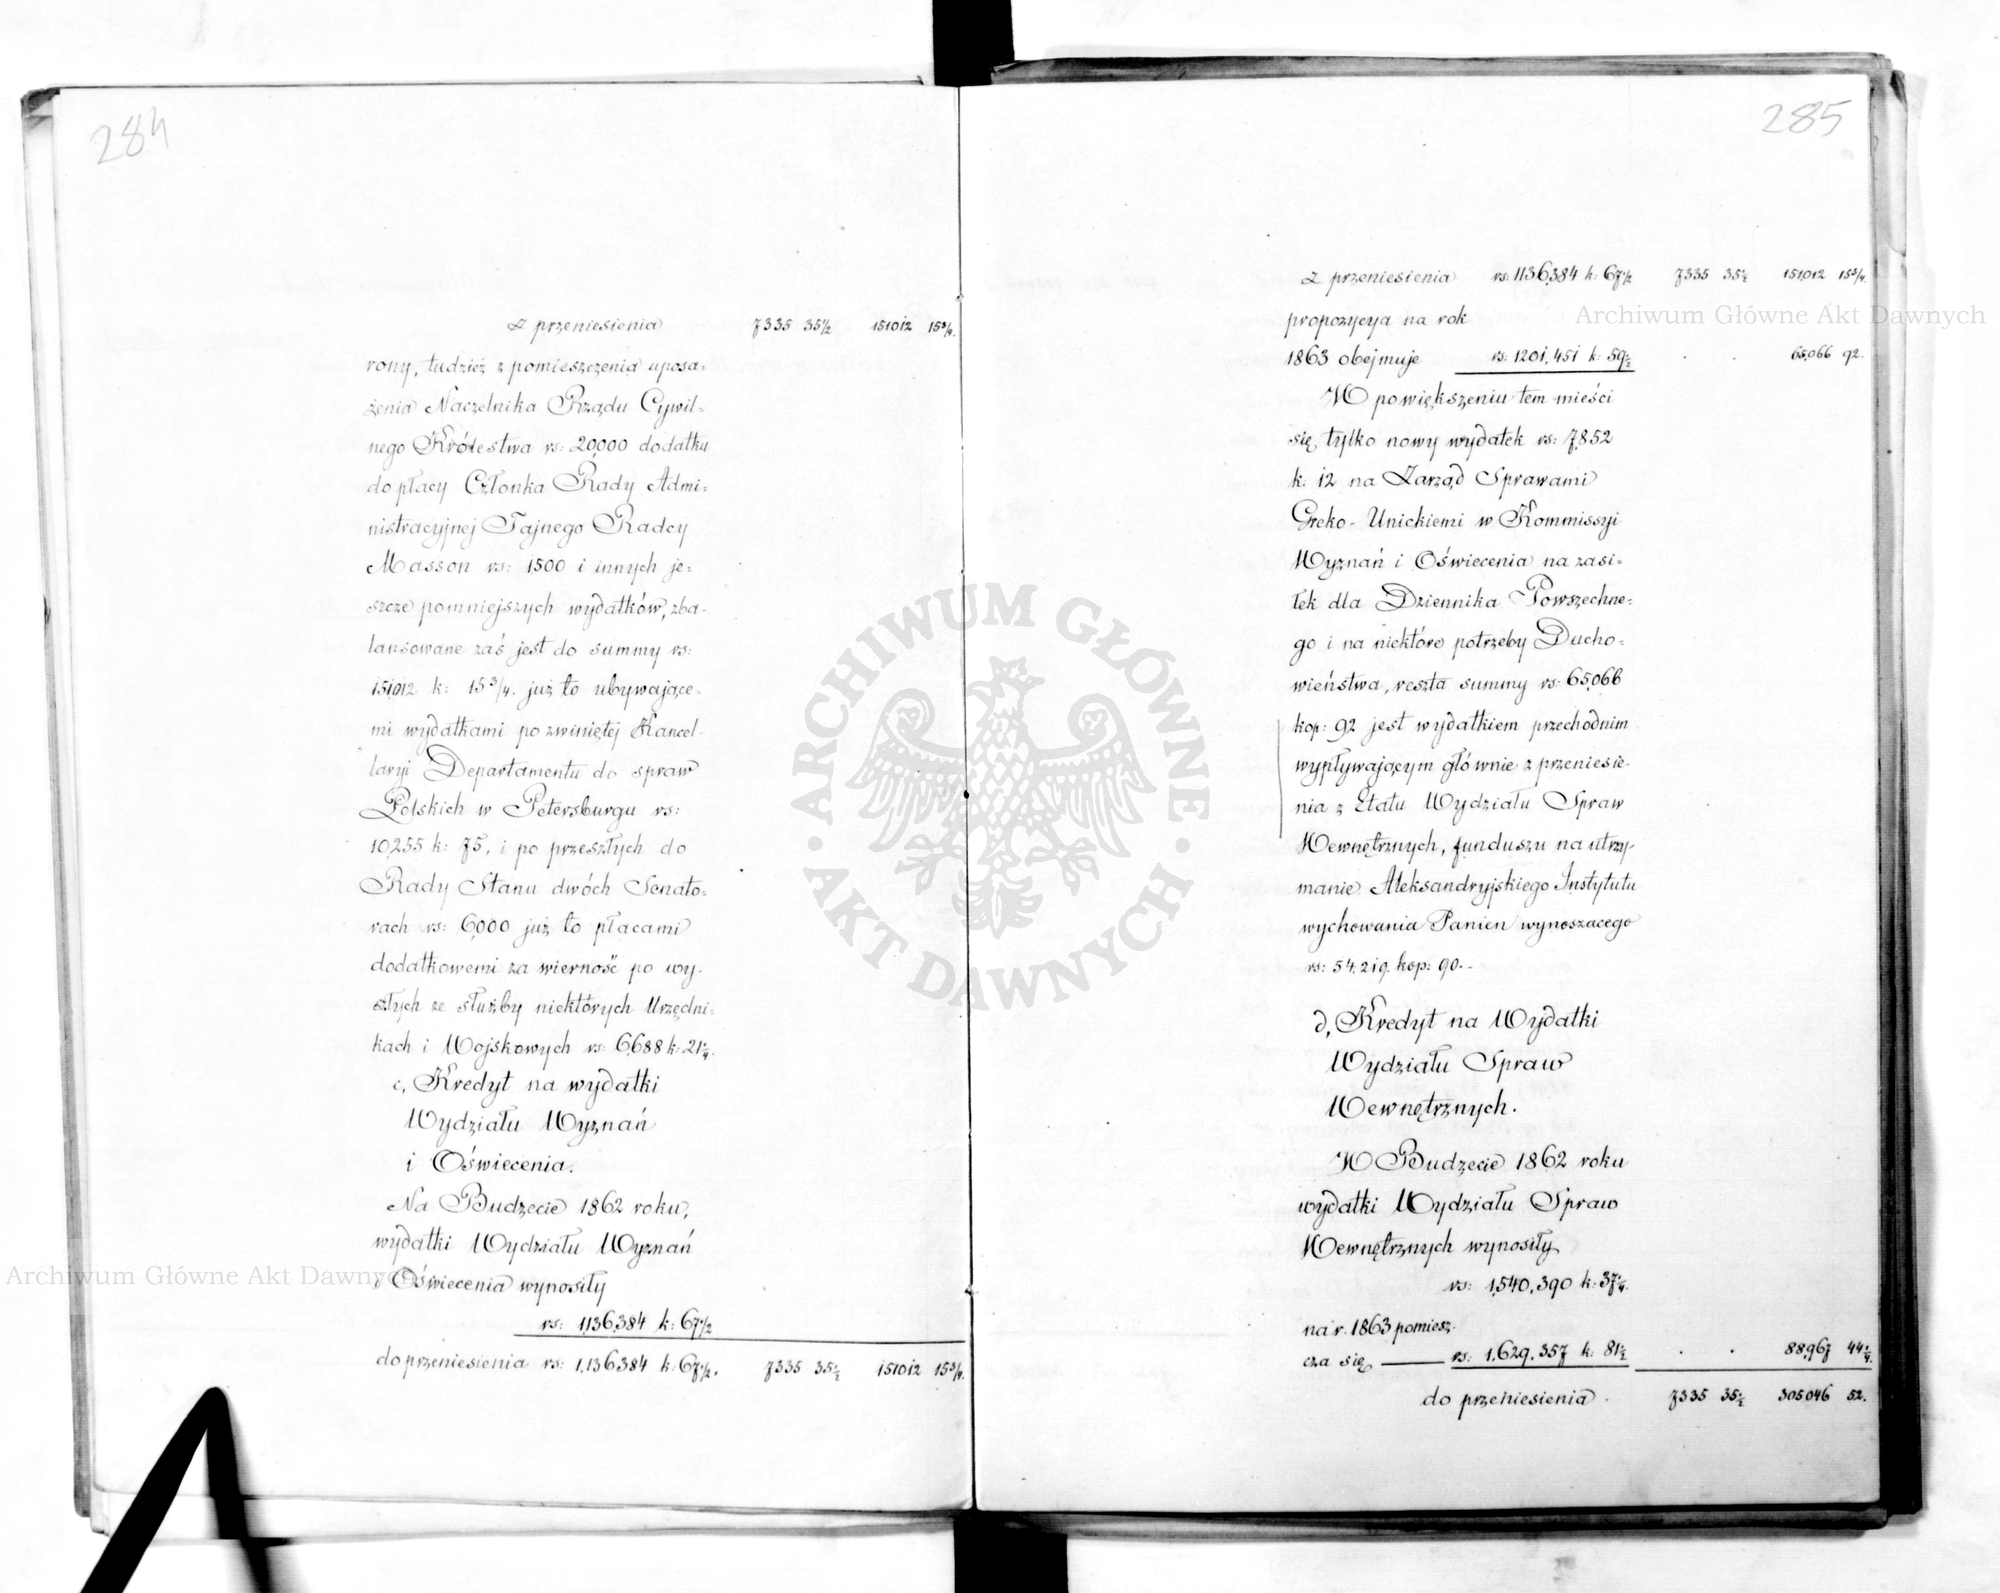 284
z przeniesienia 7335 35½ 151012 15¾.
rony, tudzież z pomieszczenia uposa=
żenia Naczelnika Rządu Cywil=
nego Królestwa rs: 20,000 dodatku
do płacy Członka Rady Admi=
nistracyjnej Tajnego Radcy
Masson rs: 1500 i innych je=
szcze pomniejszych wydatków, zba-
lansowane zaś jest do summy rs:
151012 k: 15¾. już to ubywające-
mi wydatkami po zwiniętej Kancel-
laryi Departamentu do spraw
Polskich w Petersburgu rs:
10,255 k: 75, i po przeszłych do
Rady Stanu dwóch Senato=
rach rs: 6,000 już to płacami
dodatkowemi za wierność po wy-
szłych ze służby niektórych Urzędni=
kach i Wojskowych rs: 6,688 k: 21¼.
c, Kredyt na wydatki
Wydziału Wyznań
i Oświecenia.
Na Budzecie 1862 roku,
wydatki Wydziału Wyznań
i Oświecenia wynosiły
rs: 1,136,384 k: 67½
do przeniesienia rs: 1,136,384 k: 67½. 7335 35½ 151012 15¾.
285
z przeniesienia rs: 1136,384 k: 67½ 7335 35½ 151,012 15¾.
propozycya na rok
1863 obejmuje rs: 1201,451 k: 59½ . . 65,066 92.
W powiększeniu tem mieści
się tylko nowy wydatek rs: 7,852
k: 12 na Zarząd Sprawami
Greko-Unickiemi w Kommissyi
Wyznań i Oświecenia na zasi=
łek dla Dziennika Powszechne=
go i na niektóre potrzeby Ducho=
wieństwa, reszta summy rs: 65,066
kop: 92 jest wydatkiem przechodnim
wypływającym głównie z przeniesie-
nia z Etatu Wydziału Spraw
Wewnętrznych, funduszu na utrzy-
manie Aleksandryjskiego Instytutu
wychowania Panien wynoszacego
rs: 54,219. kop: 90.-
d, Kredyt na Wydatki
Wydziału Spraw
Wewnętrznych.
W Budzecie 1862 roku
wydatki Wydziału Spraw
Wewnętrznych wynosiły
rs: 1,540,390 k: 37¼.
na r. 1863 pomiesz-
cza się rs: 1,629,357 k: 81½ . . 88,967 44¼.
do przeniesienia . 7335 35½ 305046 52.
Archiwum Główne Akt Dawnych
Archiwum Główne Akt Dawnych
ARCHIWUM GŁÓWNE · AKT DAWNYCH ·